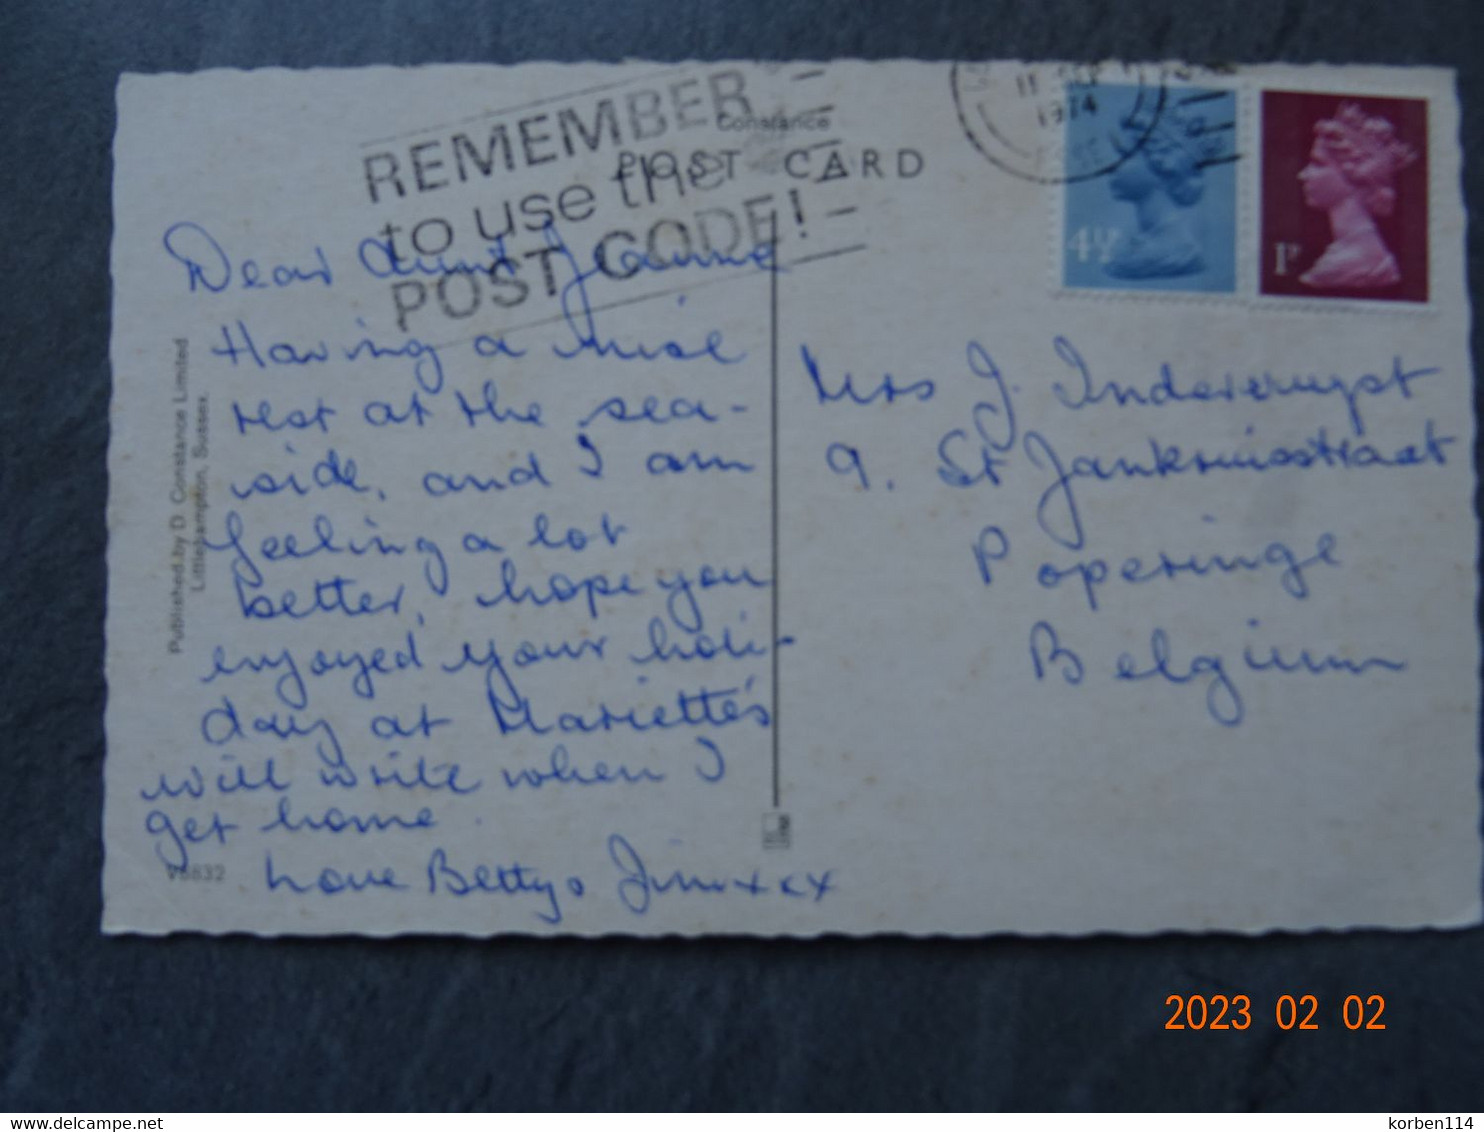 REMEMBER
to use the
POST CODE!
Constance
POST CARD
11 SEP
1974
4½
1P
Dear Aunt Jeanne
Having a nise
rest at the sea-
side, and I am
feeling a lot
better, hope you
enjoyed your holi-
day at Mariette's
will write when I
get home.
Love Betty & Jim xxx
Mrs J. Indevereuyst
9. St Janskruisstraat
Poperinge
Belgium
Published by D. Constance Limited
Littlehampton, Sussex.
V8832
2023 02 02
delcampe.net
korben114